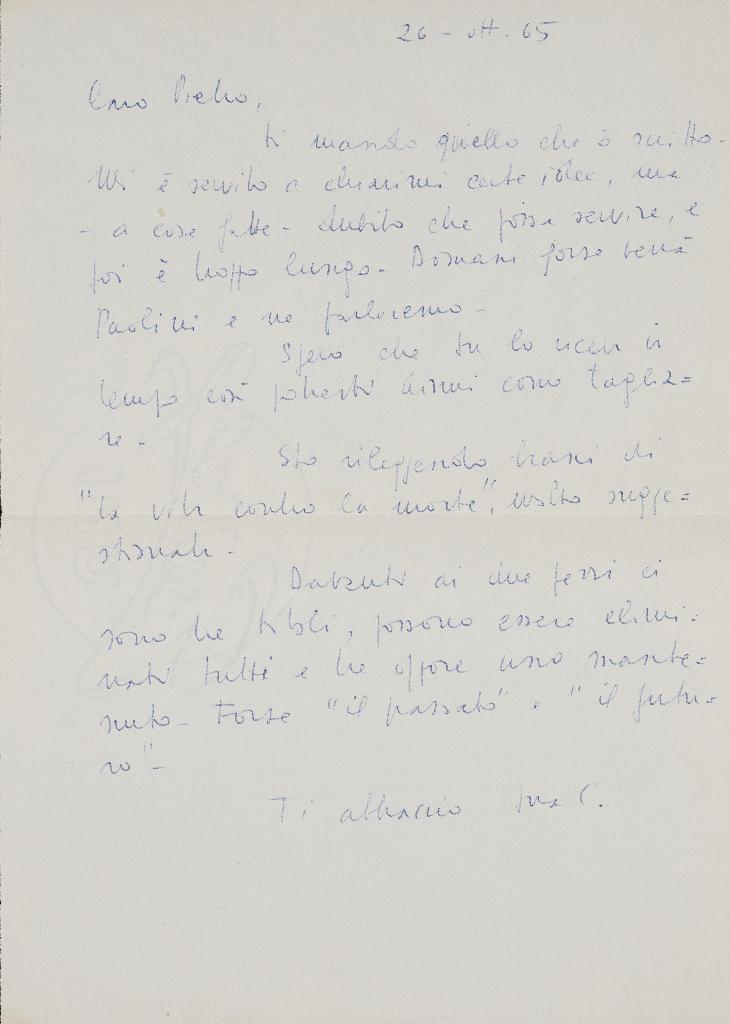 26 - ott. 65
Caro Pietro,
ti mando quello che ò scritto.
Mi è servito a chiarirmi certe idee, ma
- a cose fatte - dubito che possa servire, e
poi è troppo lungo. Domani forse verrà
Paolini e ne parleremo.
Spero che tu lo riceva in
tempo così potresti dirmi come taglia=
re -
Sto rileggendo brani di
"La vita contro la morte", molto sugge=
stionata -
Davanti ai due pezzi ci
sono tre titoli, possono essere elimi=
nati tutti e tre oppure uno mante=
nuto - Forse "il passato" e "il futu=
ro" -
Ti abbraccio tua C.